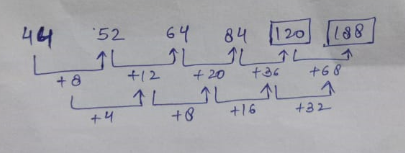 44 52 64 84 120 188
+8 +12 +20 +36 +68
+4 +8 +16 +32